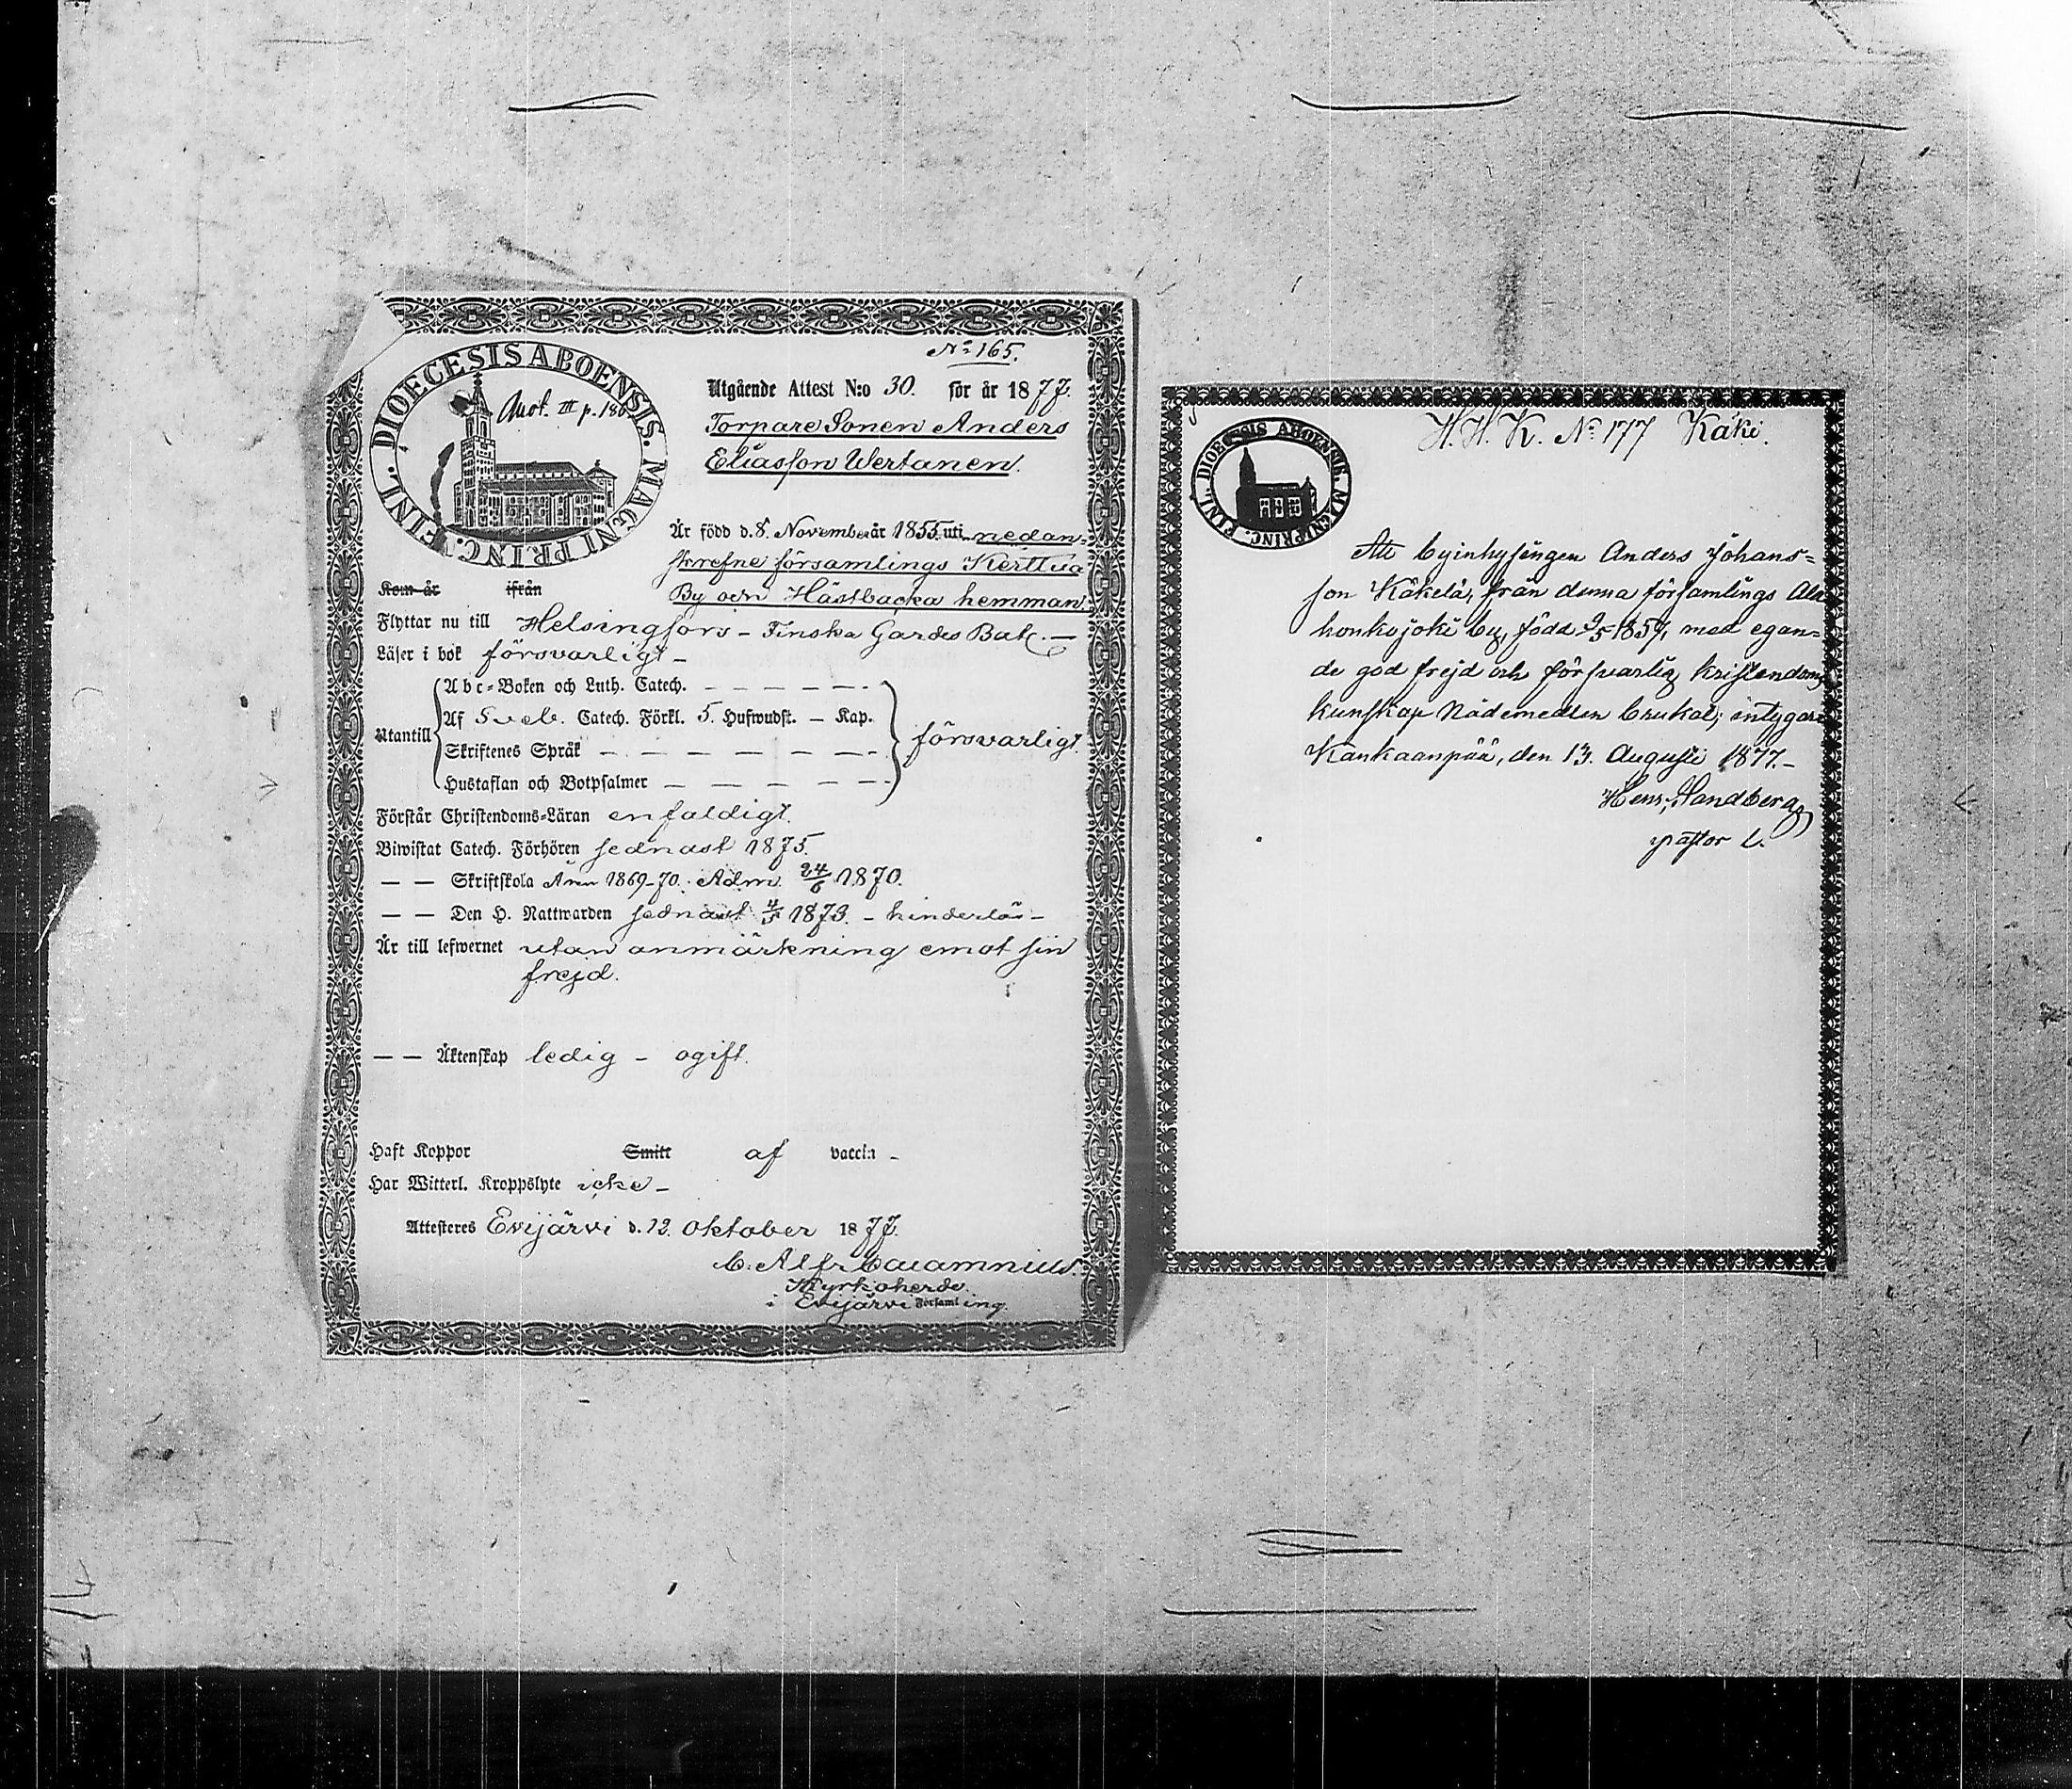 DIOECESIS ABOENSIS. MAGNI PRINC. FINL.
No 165.
Utgående Attest N:o 30. för år 1877.
Torpare Sonen Anders
Eliasson Wertanen.
Är född d. 8. November år 1855. uti nedan-
skrefne församlings Kerttua
By och Hästbacka hemman.
Kom år ifrån
Flyttar nu till Helsingfors – Finska Gardes Bat. –
Läser i bok försvarligt –
Utantill
Abc-Boken och Luth. Catech. – – – – – –
Af Sveb. Catech. Förkl. 5. Hufwudst. – Kap.
Skriftenes Språk – – – – – – –
Hustaflan och Botpsalmer – – – – – –
försvarligt.
Förstår Christendoms-Läran enfaldigt.
Biwistat Catech. Förhören sednast 1875.
— — Skriftskola Åren 1869-70. Adm. 24/6 1870.
— — Den H. Nattwarden sednast 1873. – hinderlös –
Är till lefwernet utan anmärkning emot sin
frejd.
— — Äktenskap ledig – ogift.
Haft Koppor Smitt af vaccin –
Har Witterl. Kroppslyte icke –
Attesteres Evijärvi d. 12. oktober 1877.
Kyrkoherde
i Evijärvi Församling.
DIOECESIS ABOENSIS. MAGNI PRINC. FINL.
H. H. K. No 177 Käki.
Att byinhysingen Anders Johans=
son Käkelä, från denna församlings Ala
honkojoki by, född 9/5 1857, med egan=
de god frejd och försvarlig kristendoms
kunskap Nådemedlen brukat; intygar
Kankaanpää, den 13. Augusti 1877.–
Henr. Sandberg
pastor l.